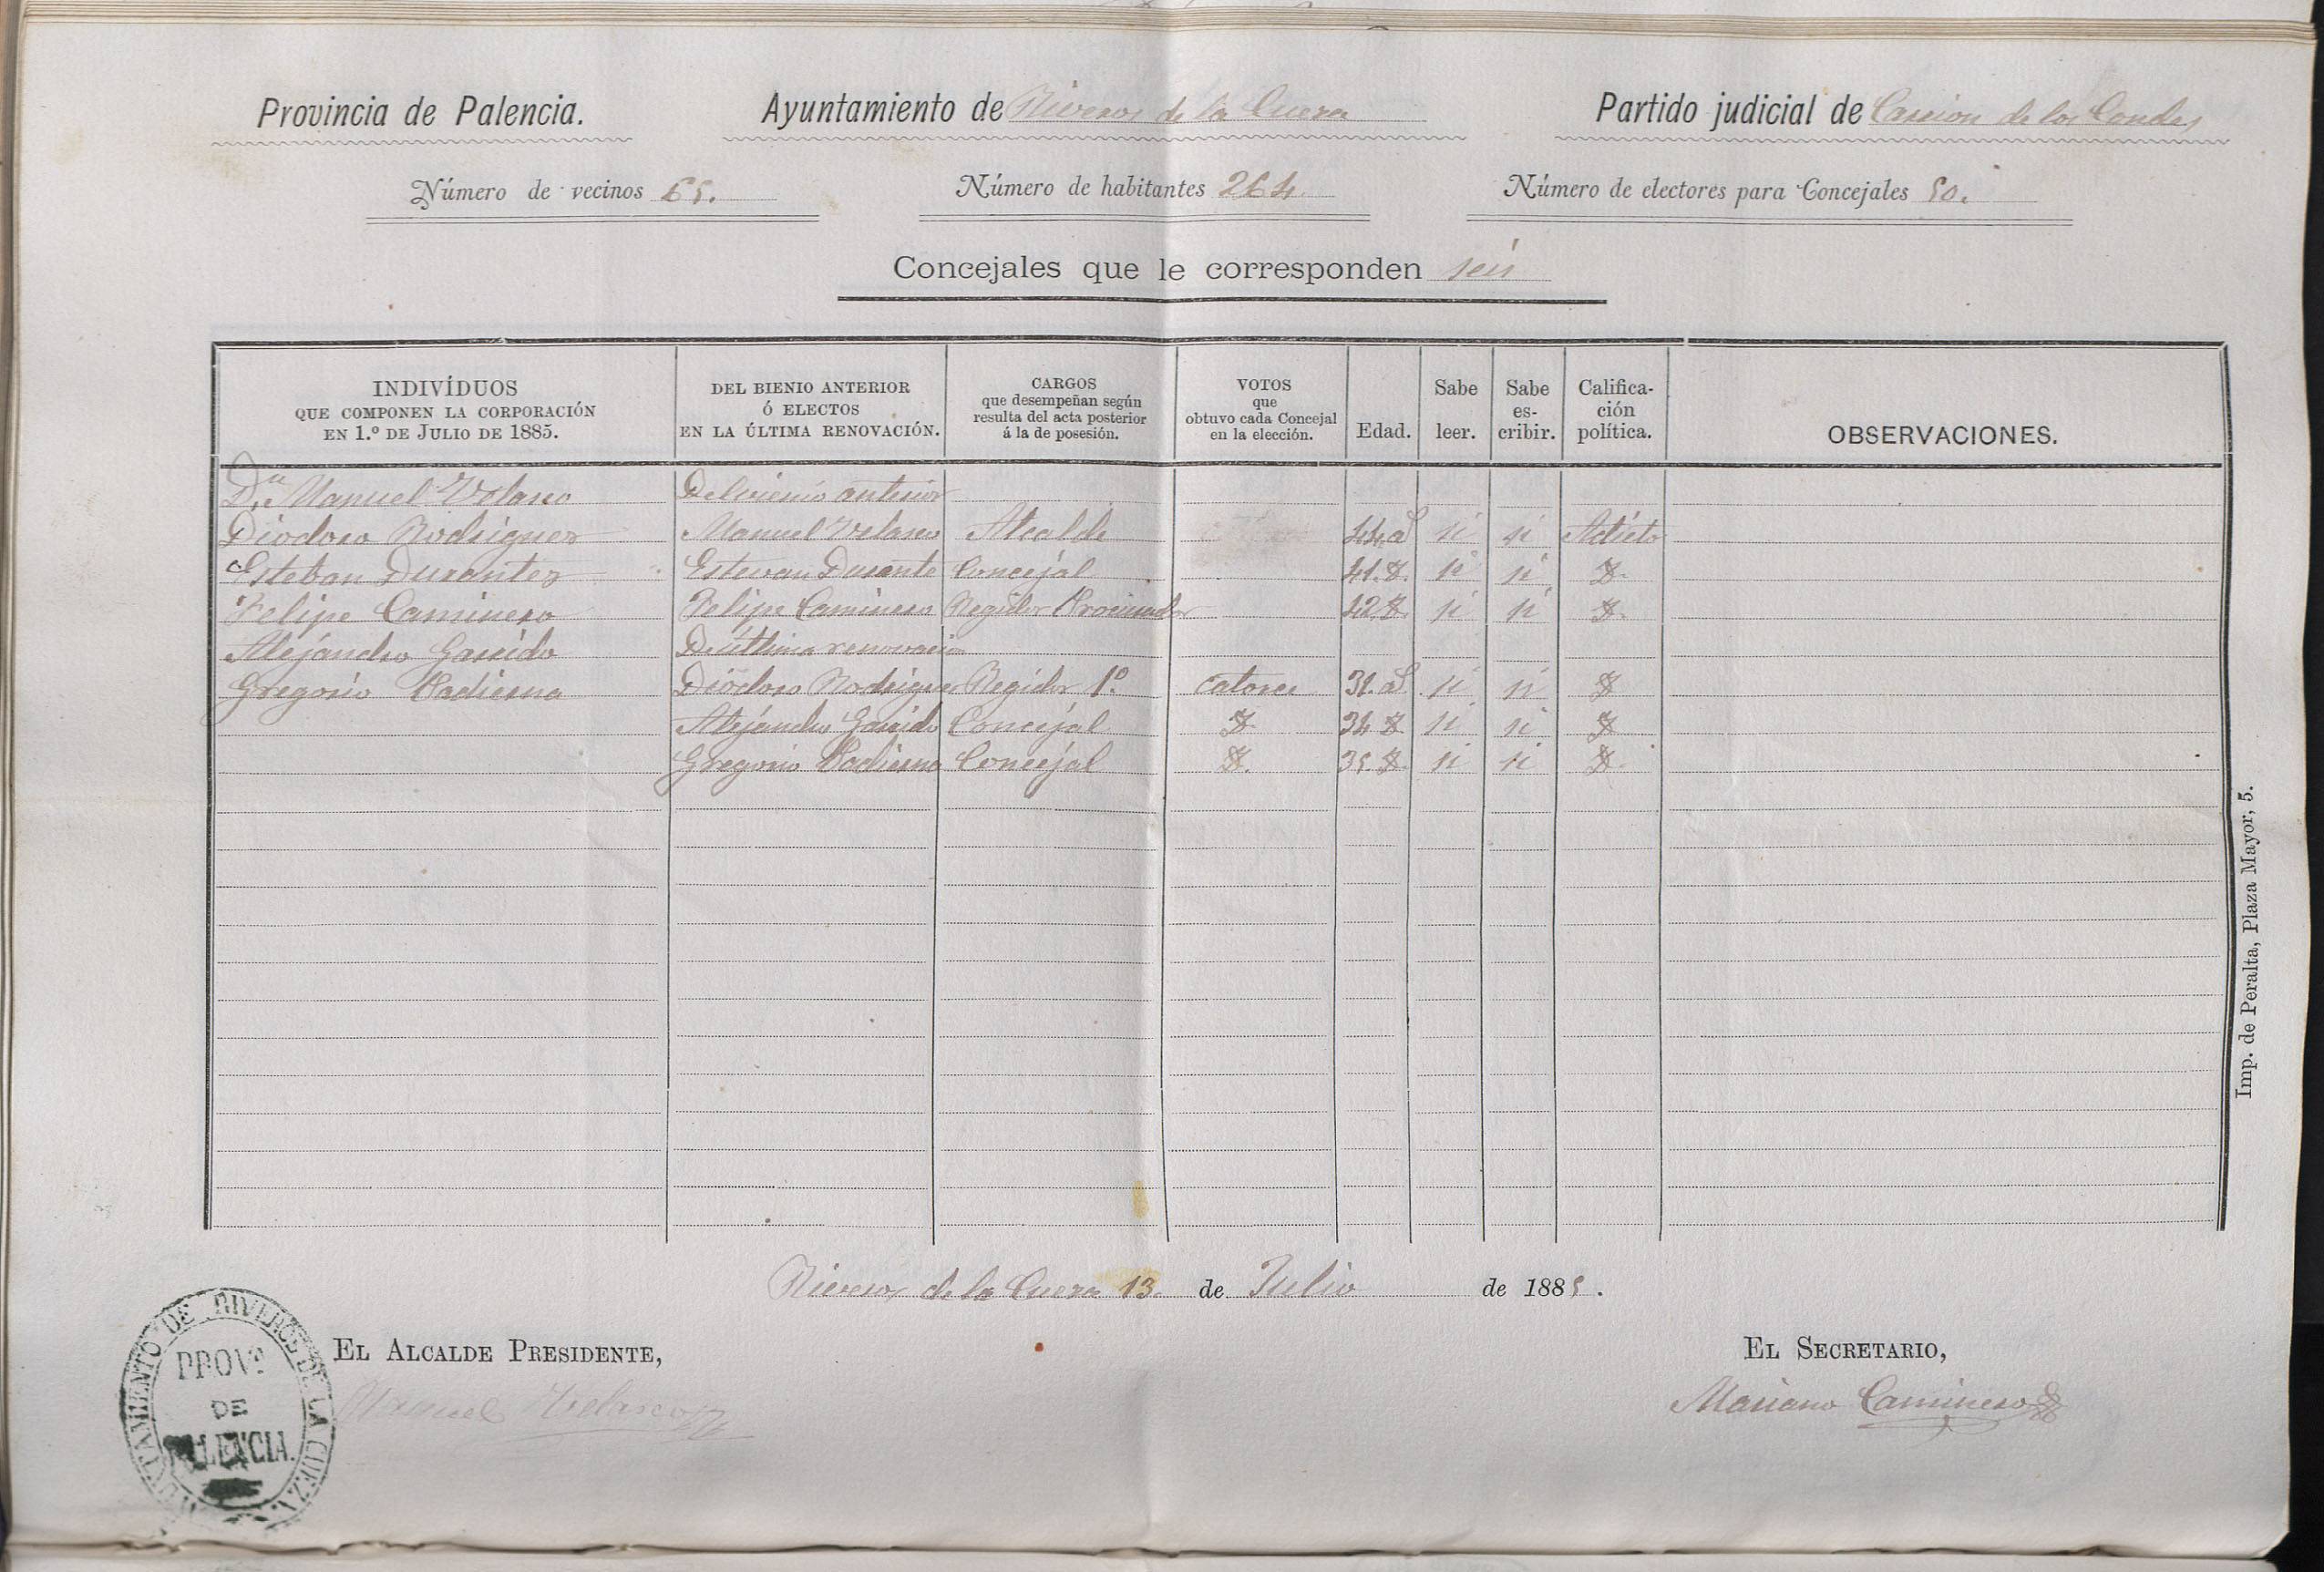 Provincia de Palencia. Ayuntamiento de Riveros de la Cueza Partido judicial de Carrion de los Condes
Número de vecinos 65. Número de habitantes 264. Número de electores para Concejales 50.
Concejales que le corresponden seis
INDIVÍDUOS QUE COMPONEN LA CORPORACIÓN EN 1.º DE JULIO DE 1885. DEL BIENIO ANTERIOR Ó ELECTOS EN LA ÚLTIMA RENOVACIÓN. CARGOS que desempeñan según resulta del acta posterior á la de posesión. VOTOS que obtuvo cada Concejal en la elección. Edad. Sabe leer. Sabe es-cribir. Califica-ción política. OBSERVACIONES.
Dn. Manuel Velasco Del bienio anterior
Diodoro Rodriguez Manuel Velasco Alcalde 44 as si si Adicto
Esteban Durantez Estevan Durante Concejal 41. si si
Felipe Caminero Felipe Caminero Regidor Procurador 42 si si
Alejandro Garrido De última renovacion
Gregorio Padierna Diodoro Rodriguez Regidor 1º. catorce 31. as si si
Alejandro Garrido Concejal 34 si si
Gregorio Padierna Concejal 35. si si
Riveros de la Cueza 13. de Julio de 1885.
EL ALCALDE PRESIDENTE, EL SECRETARIO,
Manuel Velasco Mariano Caminero
AYUNTAMIENTO DE RIVEROS DE LA CUEZA.
PROVA
DE
PALENCIA.
Imp. de Peralta, Plaza Mayor, 5.